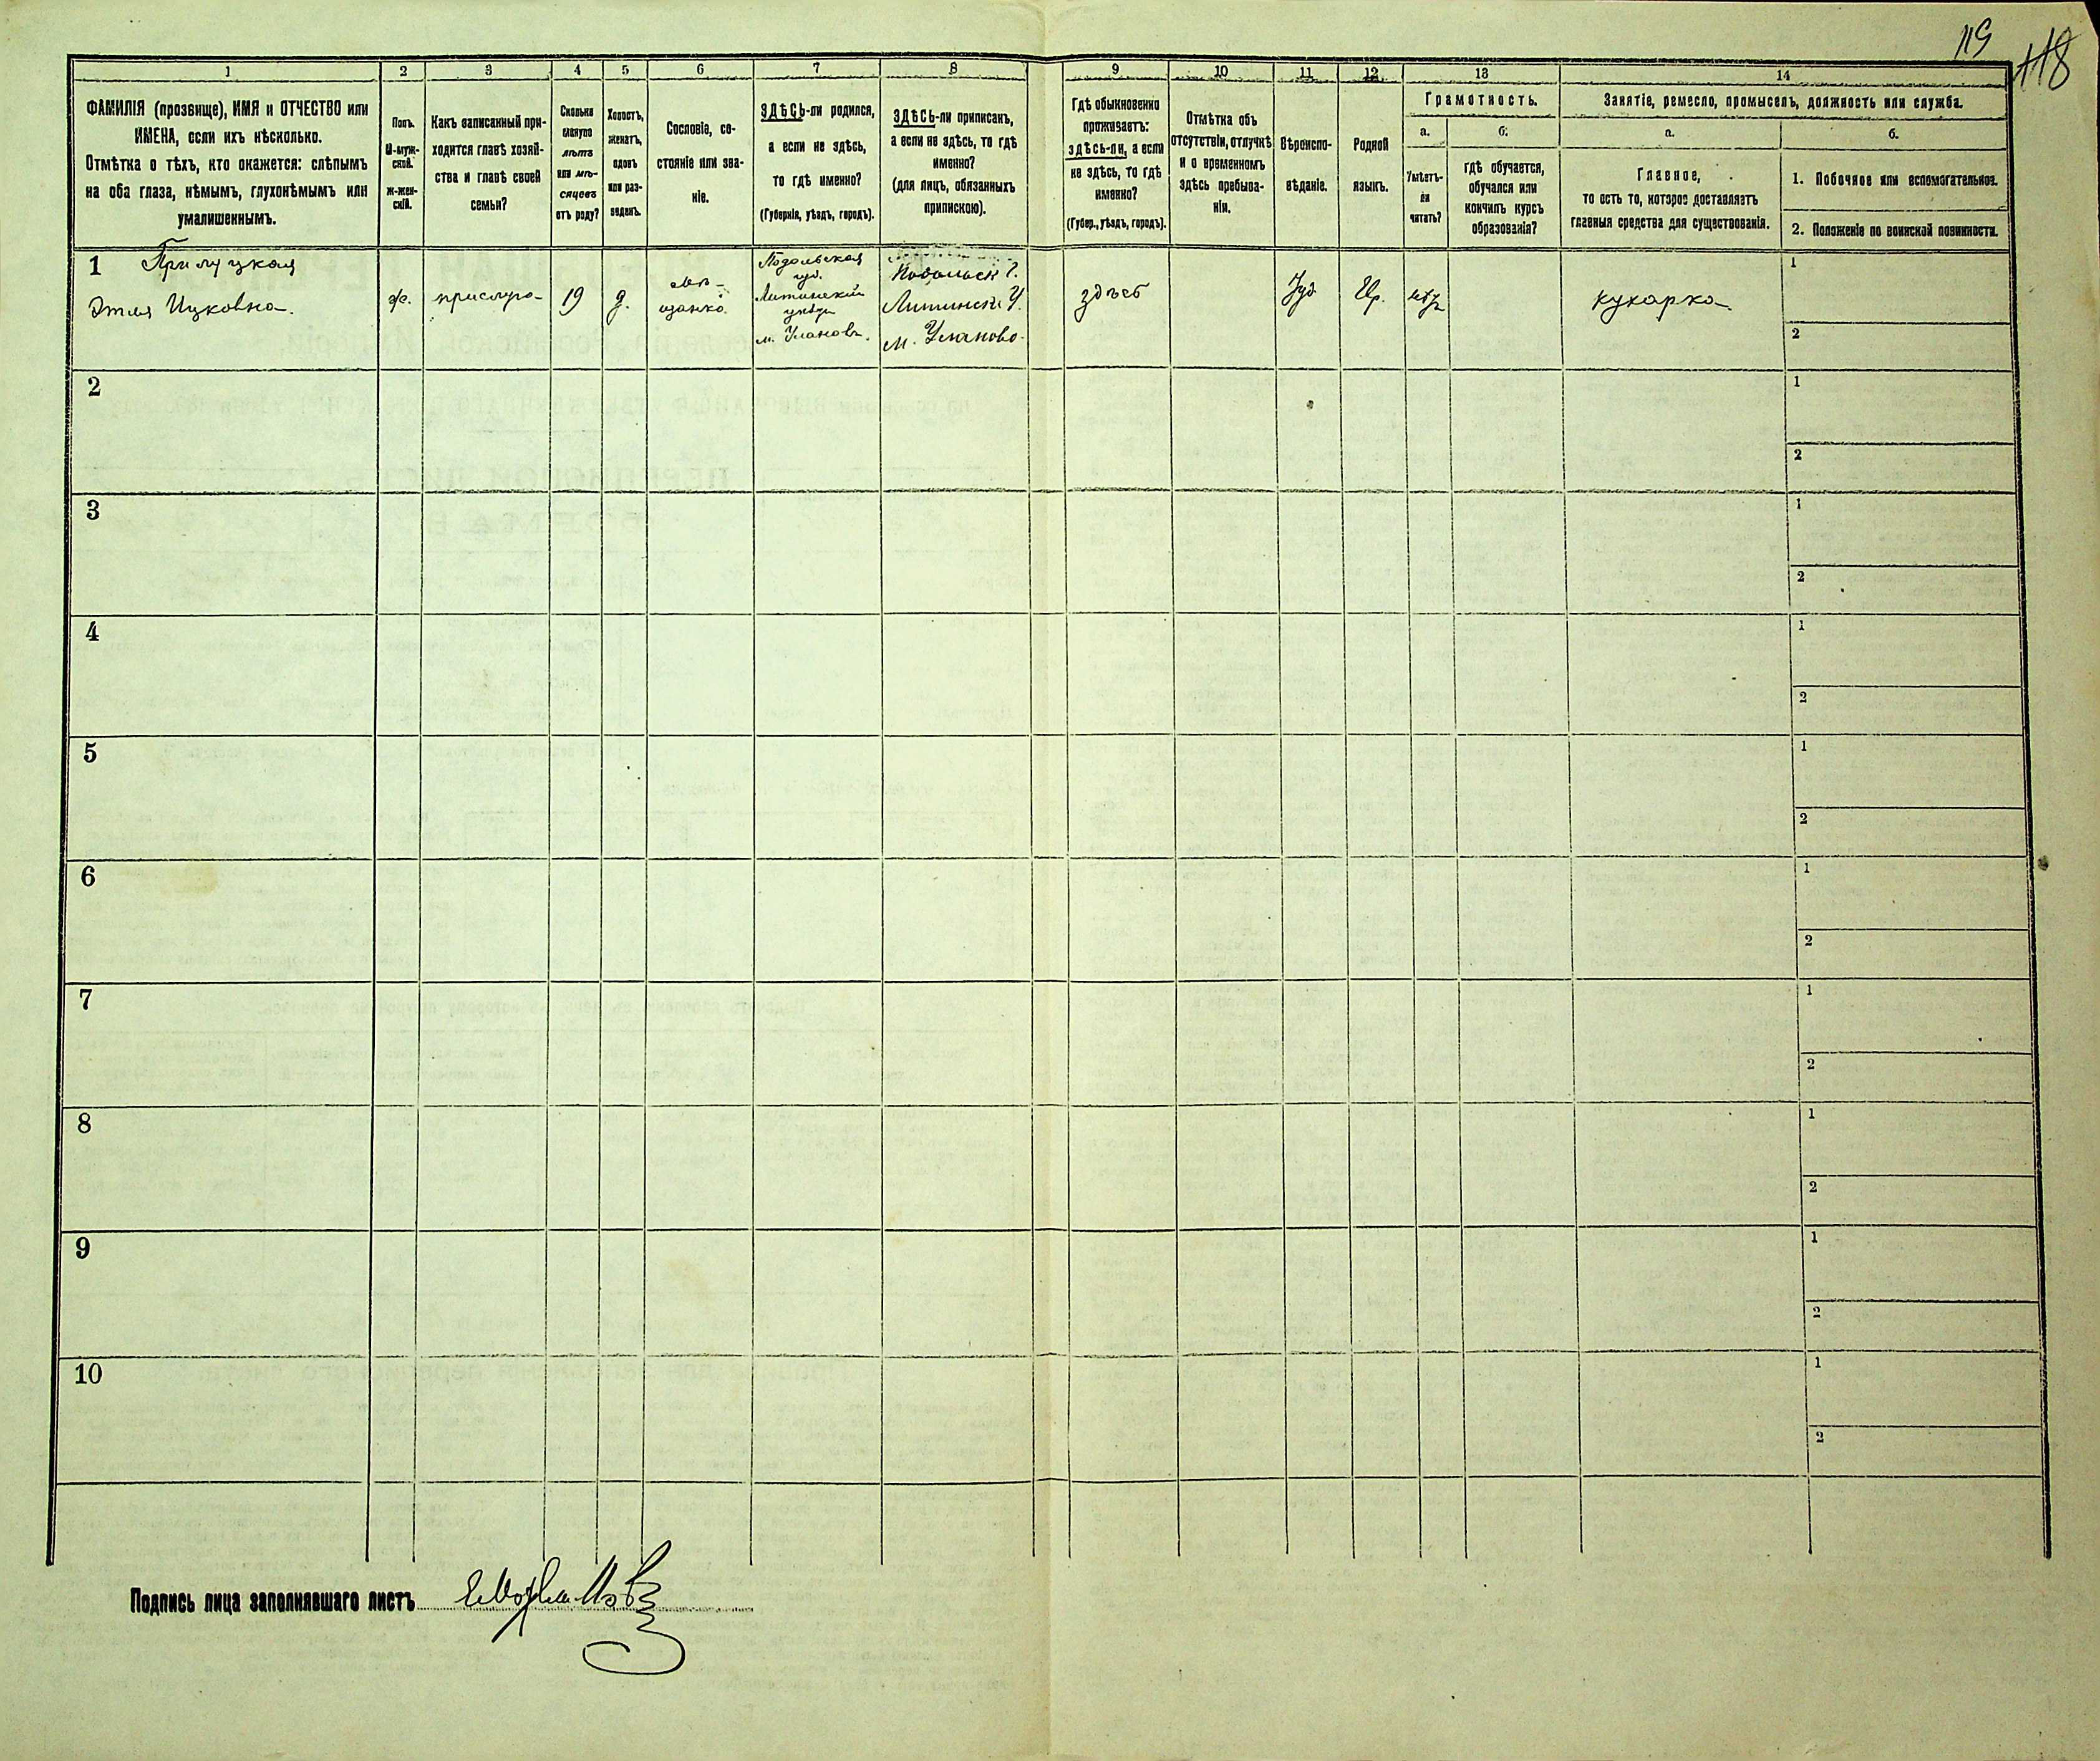 119
118
1 2 3 4 5 6 7 8 9 10 11 12 13 14
ФАМИЛІЯ (прозвище), ИМЯ и ОТЧЕСТВО или
ИМЕНА, если ихъ нѣсколько.
Отмѣтка о тѣхъ, кто окажется: слѣпымъ
на оба глаза, нѣмымъ, глухонѣмымъ или
умалишеннымъ.
Полъ.
М-муж-
ской.
Ж-жен-
скій.
Какъ записанный при-
ходится главѣ хозяй-
ства и главѣ своей
семьи?
Сколько
минуло
лѣтъ
или мѣ-
сяцевъ
отъ роду?
Холостъ,
женатъ,
вдовъ
или раз-
веденъ.
Сословіе, со-
стояніе или зва-
ніе.
ЗДѢСЬ-ли родился,
а если не здѣсь,
то гдѣ именно?
(Губернія, уѣздъ, городъ).
ЗДѢСЬ-ли приписанъ,
а если не здѣсь, то гдѣ
именно?
(для лицъ, обязанныхъ
припискою).
Гдѣ обыкновенно
проживаетъ:
здѣсь-ли, а если
не здѣсь, то гдѣ
именно?
(Губер., уѣздъ, городъ).
Отмѣтка объ
отсутствіи, отлучкѣ
и о временномъ
здѣсь пребыва-
ніи.
Вѣроиспо-
вѣданіе.
Родной
языкъ.
Грамотность.
а.
Умѣетъ-
ли
читать?
б.
гдѣ обучается,
обучался или
кончилъ курсъ
образованія?
Занятіе, ремесло, промыселъ, должность или служба.
а.
Главное,
то есть то, которое доставляетъ
главныя средства для существованія.
б.
1. Побочное или вспомогательное.
2. Положеніе по воинской повинности.
1
Прилуцкая
Этля Ицковна.
ж.
прислуга
19
д.
мѣ-
щанка
Подольская
губ.
Литинскій
уѣздъ
м. Улановъ.
Подольск. г.
Литинск. У.
м. Уланово
здѣсь
Іуд.
Евр.
нѣтъ
кухарка
1
2
2
1
2
3
1
2
4
1
2
5
1
2
6
1
2
7
1
2
8
1
2
9
1
2
10
1
2
Подпись лица заполнявшаго листъ